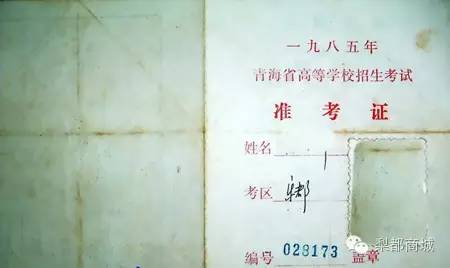 一九八五年
青海省高等学校招生考试
准考证
姓名
考区 乐都
编号 028173 盖章
梨都商城